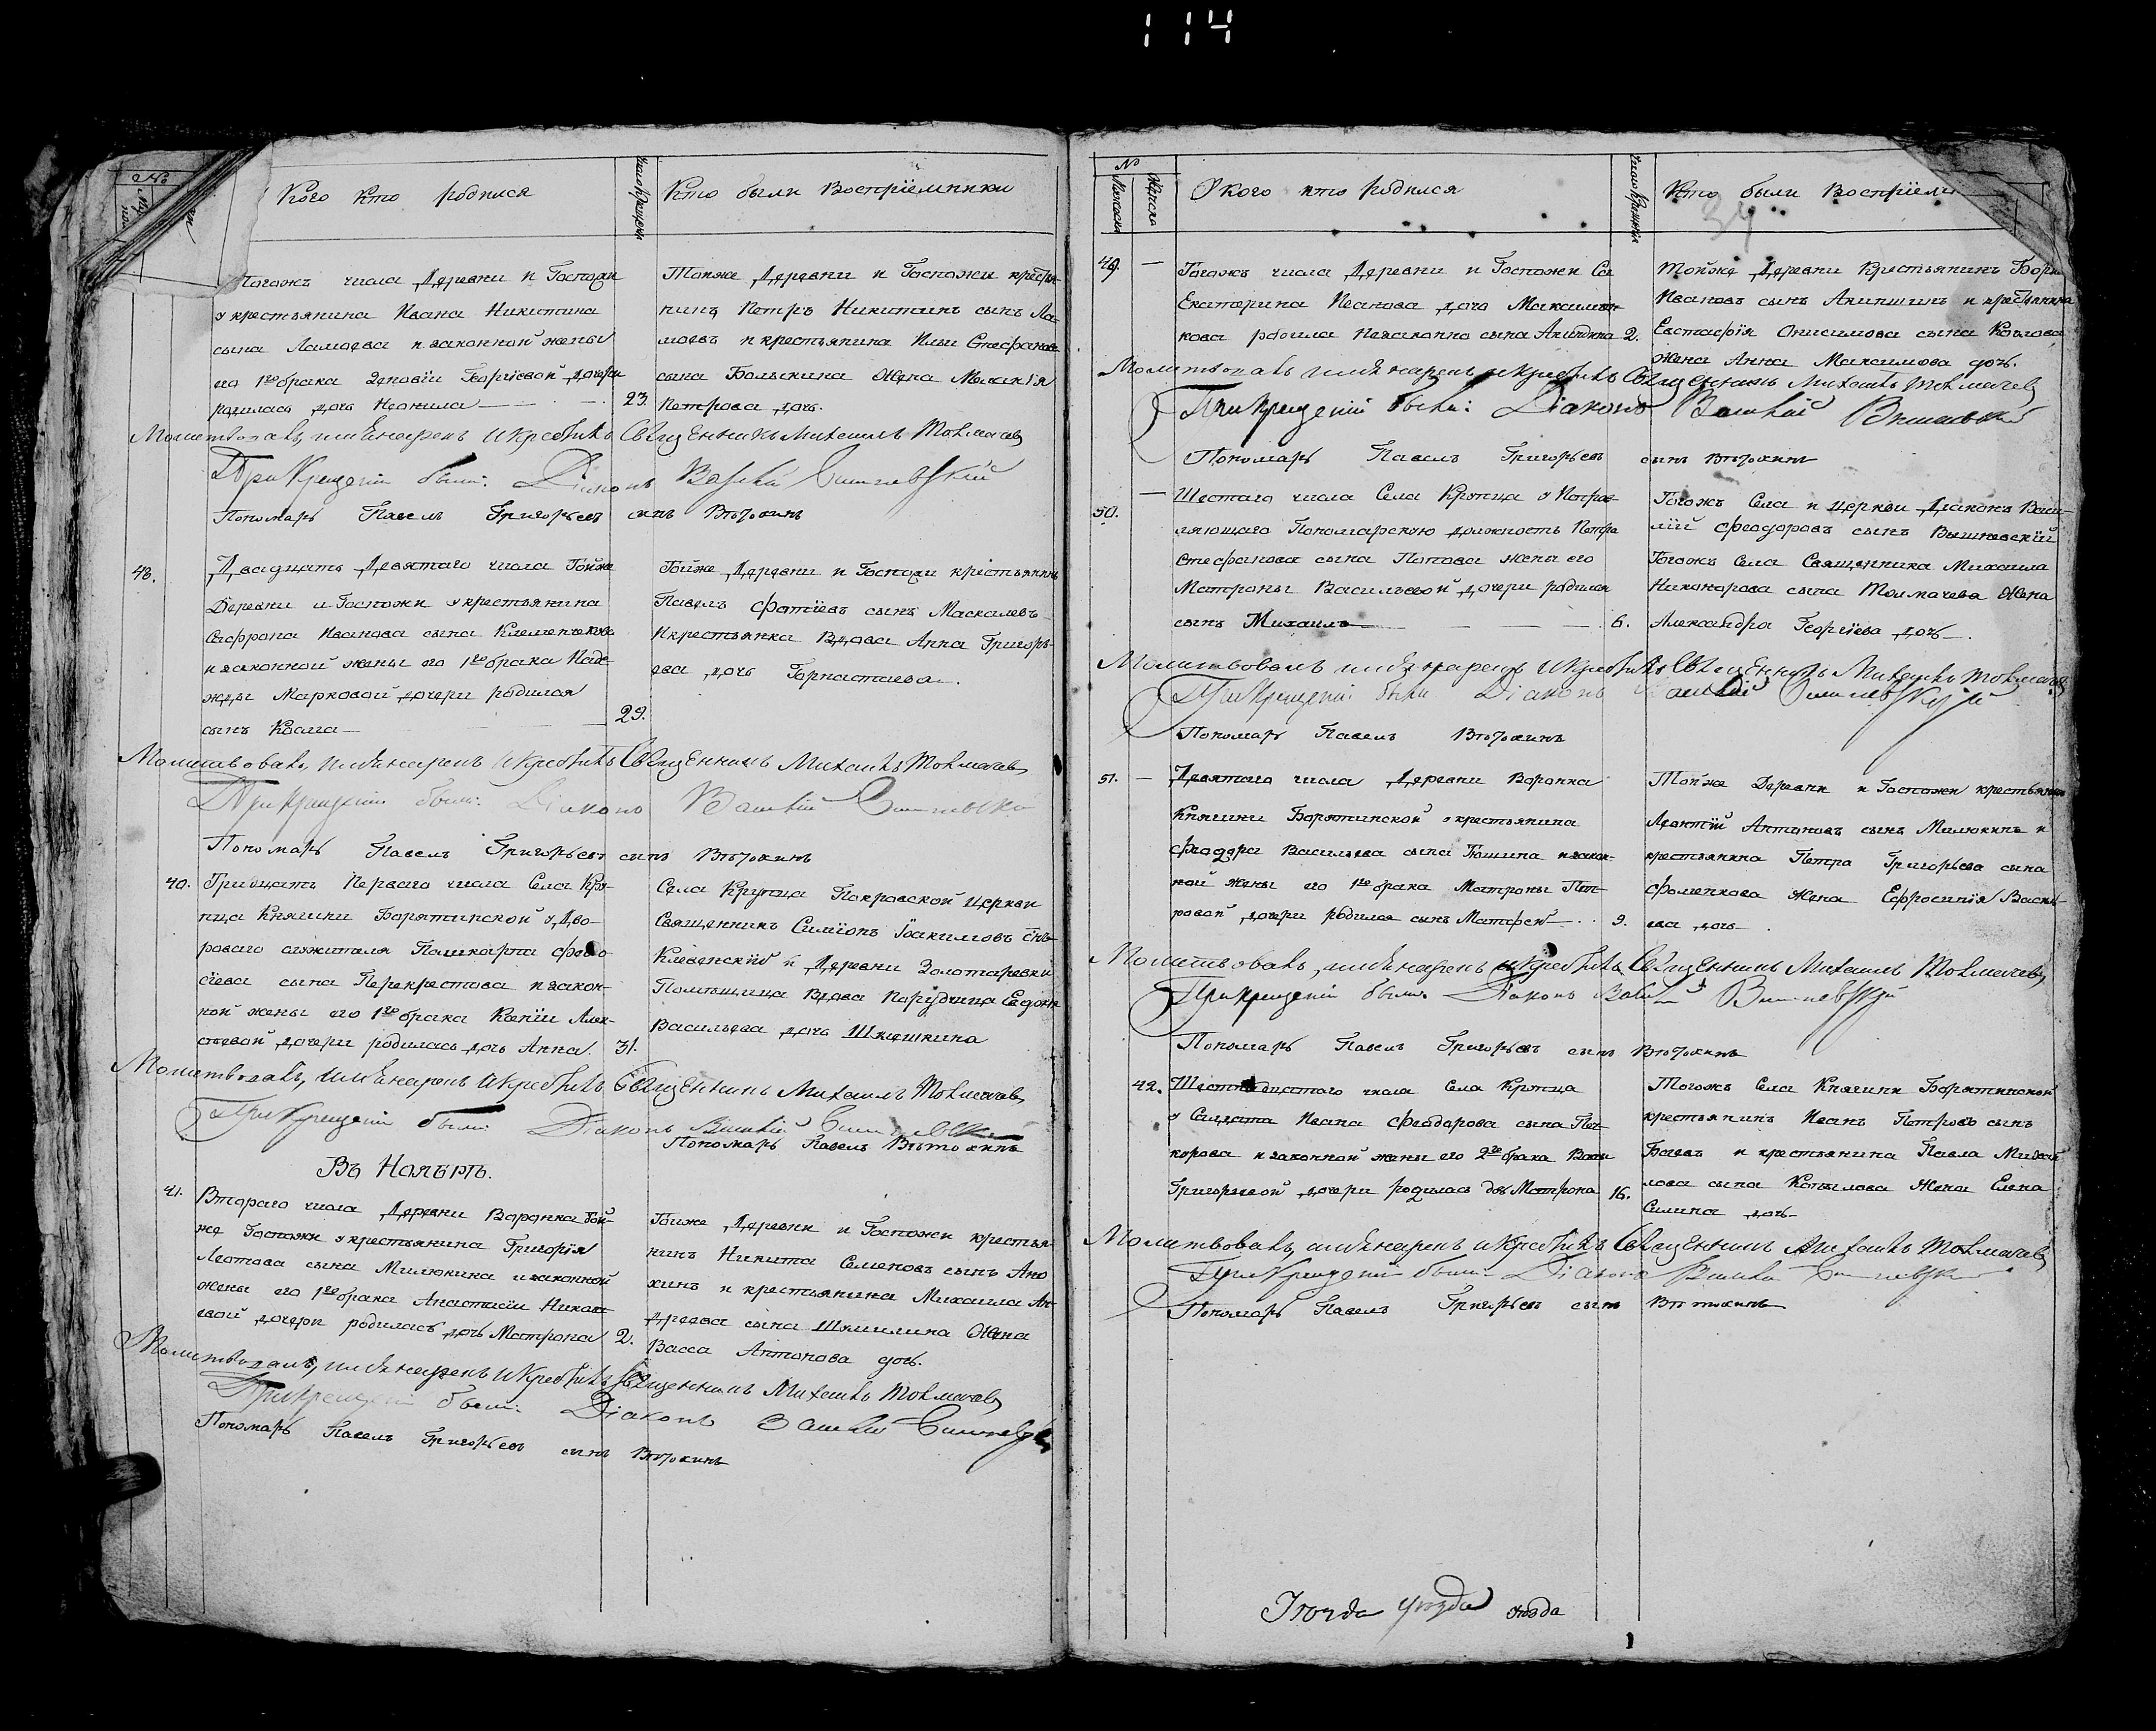 114
№
Кого кто родился
Число крещения
Кто были Восприемники
Тогожъ числа Деревни и Госпожи
у крестьянина Ивана Никитина
сына Ламоева и законной жены
его 1го брака Зеновіи Георгіевой дочери
родилась дочь Неонила
23.
Тойже Деревни и Госпожи крестья-
нинъ Петръ Никитинъ сынъ Ла-
моевъ и крестьянина Ильи Стефанова
сына Болыкина Жена Меланія
Петрова дочь.
Молитвовалъ, имя нарекъ и крестилъ Священникъ Михаилъ Толмачевъ
При Крещеніи были: Діаконъ Василій Вишневскій
Пономарь Павелъ Григорьевъ сынъ
48.
Двадцать Девятаго числа Тойже
Деревни и Госпожи у крестьянина
Сафрона Иванова сына
и законной жены его 1го брака Наде-
жды Марковой дочери родился
сынъ Козма
29.
Тойже Деревни и Госпожи крестьянинъ
Павелъ Фотіевъ сынъ Маскалевъ
И крестьянка Вдова Анна Григорь-
ева дочь Горнастаева.
Молитвовалъ, имя нарекъ и крестилъ Священникъ Михаилъ Толмачевъ
При Крещеніи были: Діаконъ Василій Вишневскій
Пономарь Павелъ Григорьевъ сынъ
40.
Тридцать Перваго числа Села Кру-
пца Княгини Борятинской у Дво-
роваго служителя
сіева сына Перекрестова и закон-
ной жены его 1го брака Ксеніи Алек-
сѣевой дочери родилась дочь Анна.
31.
Села Крупца Покровской Церкви
Священникъ Симіонъ Іоакимовъ снъ
Клевенскій и Деревни Золотаревки
Помѣщица Вдова Порутчица Евдокія
Васильева дочь
Молитвовалъ, имя нарекъ и крестилъ Священникъ Михаилъ Толмачевъ
При Крещеніи были: Діаконъ Василій Вишневскій
Пономарь Павелъ
Въ
41.
Втораго числа Деревни Воронка Той-
же Госпожи у крестьянина Григорія
сына Милюкина и законной
жены его 1го брака Анастасіи Никола-
евой дочери родилась дочь Матрона
2.
Тойже Деревни и Госпожи крестья-
нинъ Никита Семеновъ сынъ Ано-
хинъ и крестьянина Михаила Ан-
дреева сына Шамилина Жена
Васса Антонова дочь.
Молитвовалъ, имя нарекъ и крестилъ Священникъ Михаилъ Толмачевъ
При Крещеніи были: Діаконъ Василій Вишневскій
Пономарь Павелъ Григорьевъ сынъ
№
Мужеска
Женска
У кого кто родился
Число Крещенія
Кто были
34
49.
Тогожъ числа Деревни и Госпожи
Екатерина Иванова дочь
кова родила незаконно сына
2.
Тойже Деревни Крестьянинъ
Ивановъ сынъ Анипшинъ и крестьянина
Евстафія Онисимова сына Козлова
жена Анна Максимова дочь.
Молитвовалъ имя нарекъ и крестилъ Священникъ Михаилъ Толмачевъ
При Крещеніи были: Діаконъ Василій Вишневскій
Пономарь Павелъ Григорьевъ сынъ
50.
Шестаго числа Села Крупца у Исправ-
ляющаго Пономарскую должность Петра
Стефанова сына Попова жены его
Матроны Васильевой дочери родился
сынъ Михаилъ
6.
Тогожъ Села и Церкви Діаконъ Васи-
лій Феодоровъ сынъ Вышневскій
Тогожъ Села Священника Михаила
Никанорова сына Толмачева Жена
Александра Георгіева дочь.
Молитвовалъ имя нарекъ и крестилъ Священникъ Михаилъ Толмачевъ
При Крещеніи были Діаконъ Василій Вишневскій
Пономарь Павелъ
51.
Девятаго числа Деревни Воронка
Княгини Борятинской у крестьянина
Феодора Васильева сына Тюшина и закон-
ной жены его 1го брака Матроны Пет-
ровой дочери родился сынъ Матфей
9.
Тойже Деревни и Госпожи крестьянинъ
Леонтій Антоновъ сынъ Милюкинъ и
крестьянина Петра Григорьева сына
Фоменкова Жена Ефросинія Василь-
ева дочь
Молитвовалъ, имя нарекъ и крестилъ Священникъ Михаилъ Толмачевъ
При Крещеніи были: Діаконъ Василій Вишневскій
Пономарь Павелъ Григорьевъ сынъ
42.
Шестнадцатаго числа Села Крупца
у Солдата Ивана Феодорова сына
и законной жены его 2го брака
Григорьевой дочери родилась дочь Матрона
16.
Тогожъ Села Княгини Борятинской
крестьянинъ Иванъ Петровъ сынъ
Боевъ и крестьянина Павла Михай-
лова сына Копылова Жена Елена
Силина дочь
Молитвовалъ, имя нарекъ и крестилъ Священникъ Михаилъ Толмачевъ
При Крещеніи были: Діаконъ Василій Вишневскій
Пономарь Павелъ Григорьевъ сынъ